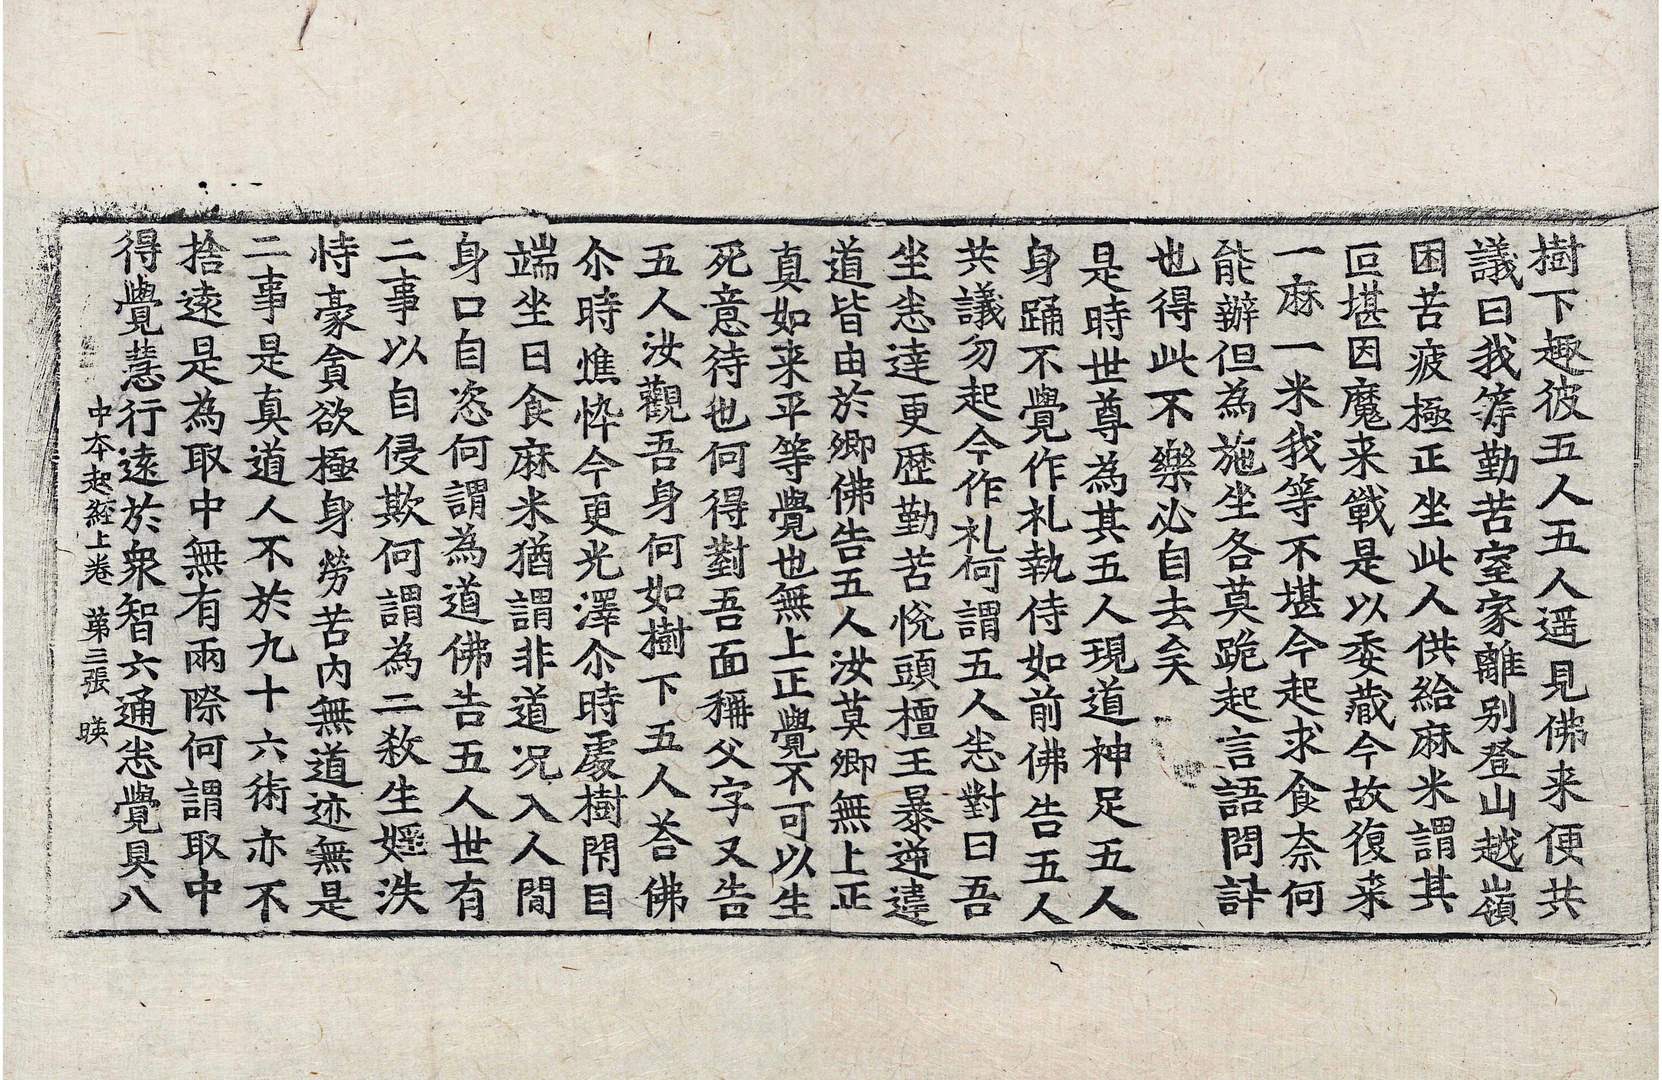 樹下趣彼五人五人遥見佛来便共
議曰我等勤苦室家離别登山越嶺
困苦疲極正坐此人供給麻米謂其
叵堪因魔来戰是以委藏今故復来
一麻一米我等不堪今起求食奈何
能辦但為施坐各莫跪起言語問訊
也得此不樂必自去矣
是時世尊為其五人現道神足五人
身踊不覺作礼執侍如前佛告五人
共議勿起今作礼何謂五人悉對曰吾
坐悉達更歷勤苦悅頭檀王暴逆違
道皆由於卿佛告五人汝莫卿無上正
真如来平等覺也無上正覺不可以生
死意待也何得對吾面稱父字又告
五人汝觀吾身何如樹下五人荅佛
尒時憔悴今更光澤尒時處樹閇目
端坐日食麻米猶謂非道况入人間
身口自恣何謂為道佛告五人世有
二事以自侵欺何謂為二殺生婬泆
恃豪貪欲極身勞苦内無道迹無是
二事是真道人不於九十六術亦不
捨遠是為取中無有兩際何謂取中
得覺慧行遠於衆智六通悉覺具八
中本起經上卷 第三張 暎